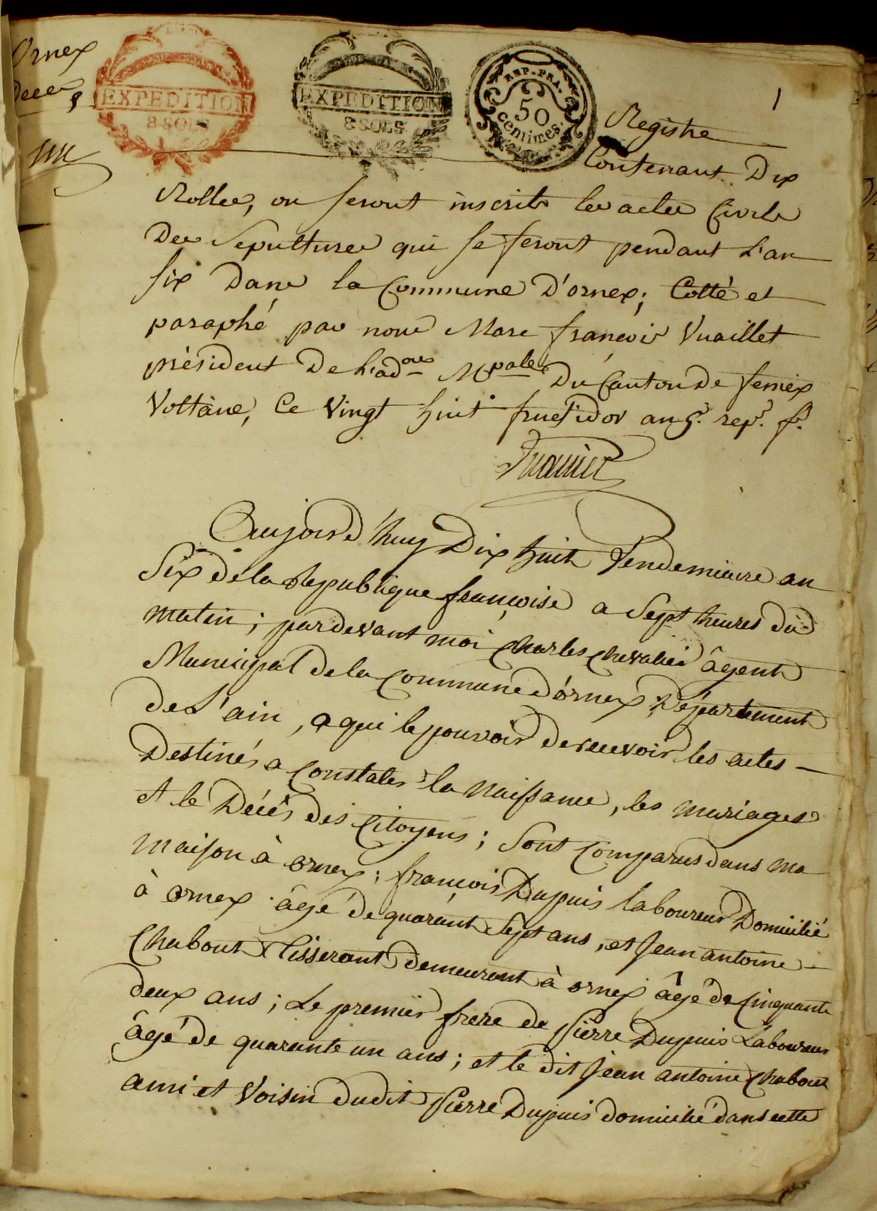 Ornex
Décès
EXPEDITION
8 SOLS
EXPEDITION
8 SOLS
REP. FRA.
50
centimes.
1
Registre
Contenant Dix
Rolles, ou seront inscrits les actes Civils
Des Sepultures qui se feront pendant L'an
six Dans la Commune D'ornex; Cotté et
paraphé par nous Marc françois Vuaillet
président De L'adon Mpale Du Canton De fernex
Voltaire, Ce Vingt huit fructidor an 5e. rep. f.
Aujourd'huy Dix huit Vendemiaire an
Six de la Republique françoise a Sept heures du
matin; pardevant moi Charles Chevalier âgent
Municipal de la Commune d'ornex, Département
de l'ain, a qui le pouvoir de recevoir les actes
Destinés a Constater la Naissance, les mariages
et le Décès des Citoyens; Sont Comparus dans ma
maison à ornex; françois Dupuis laboureur Domicilié
à ornex âgé de quarant Sept ans, et Jean antoine
Chabout Tisserant demeurant à ornex âgé de Cinquante
deux ans; Le premier frere de Pierre Dupuis Laboureur
âgé de quarante un ans; et le dit Jean antoine Chabout
ami et Voisin dudit Pierre Dupuis domicilié dans cette